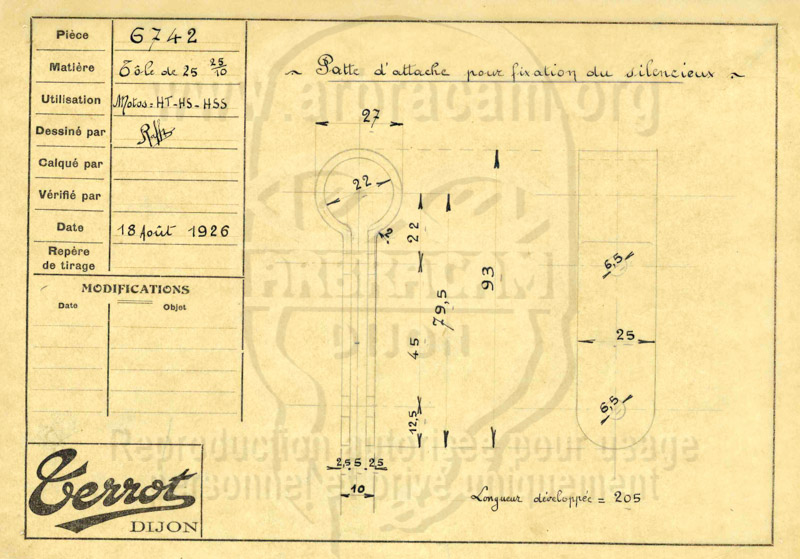 Pièce 6742
Matière Tôle de 25 25/10
Utilisation Motos = HT - HS - HSS
Dessiné par
Calqué par
Vérifié par
Date 18 Août 1926
Repère
de tirage
MODIFICATIONS
Date Objet
~ Patte d'attache pour fixation du silencieux ~
www.arhracam.org
27
22
2
22
79,5
93
45
12,5
2,5 5 2,5
10
6,5
25
6,5
ARHRACAM
DIJON
© Reproduction autorisée pour usage
personnel et privé uniquement
Longueur développée = 205
Terrot
DIJON